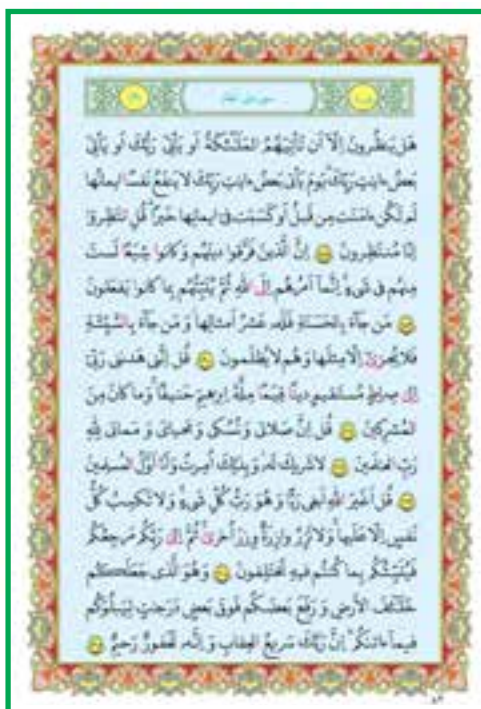 هَل يَنظُرونَ إِلّا أَن تَأتِيَهُمُ المَلٰئِكَةُ أَو يَأتِيَ رَبُّكَ أَو يَأتِيَ
بَعضُ ءايٰتِ رَبِّكَ يَومَ يَأتى بَعضُ ءايٰتِ رَبِّكَ لا يَنفَعُ نَفسًا ايمانُها
لَم تَكُن ءامَنَت مِن قَبلُ أَو كَسَبَت فى ايمانِها خَيرًا قُلِ انتَظِروا
إِنّا مُنتَظِرونَ إِنَّ الَّذينَ فَرَّقوا دينَهُم وَكانوا شِيَعًا لَستَ
مِنهُم فى شَىءٍ إِنَّما أَمرُهُم إِلَى اللهِ ثُمَّ يُنَبِّئُهُم بِما كانوا يَفعَلونَ
مَن جاءَ بِالحَسَنَةِ فَلَهُ عَشرُ أَمثالِها وَ مَن جاءَ بِالسَّيِّئَةِ
فَلا يُجزىٰ إِلّا مِثلَها وَهُم لا يُظلَمونَ قُل إِنَّنى هَدىٰنى رَبّى
إِلىٰ صِرٰطٍ مُستَقيمٍ دينًا قِيَمًا مِلَّةَ إِبرٰهيمَ حَنيفًا وَ ما كانَ مِنَ
المُشرِكينَ قُل إِنَّ صَلاتى وَ نُسُكى وَ مَحياىَ وَ مَماتى لِلّهِ
رَبِّ العٰلَمينَ لا شَريكَ لَهُ وَ بِذٰلِكَ أُمِرتُ وَ أَنَا أَوَّلُ المُسلِمينَ
قُل أَغَيرَ اللهِ أَبغى رَبًّا وَ هُوَ رَبُّ كُلِّ شَىءٍ وَ لا تَكسِبُ كُلُّ
نَفسٍ إِلّا عَلَيها وَ لا تَزِرُ وازِرَةٌ وِزرَ أُخرىٰ ثُمَّ إِلىٰ رَبِّكُم مَرجِعُكُم
فَيُنَبِّئُكُم بِما كُنتُم فيهِ تَختَلِفونَ وَ هُوَ الَّذى جَعَلَكُم
خَلٰئِفَ الأَرضِ وَ رَفَعَ بَعضَكُم فَوقَ بَعضٍ دَرَجٰتٍ لِيَبلُوَكُم
فيما ءاتىٰكُم إِنَّ رَبَّكَ سَريعُ العِقابِ وَ إِنَّهُ لَغَفورٌ رَحيمٌ